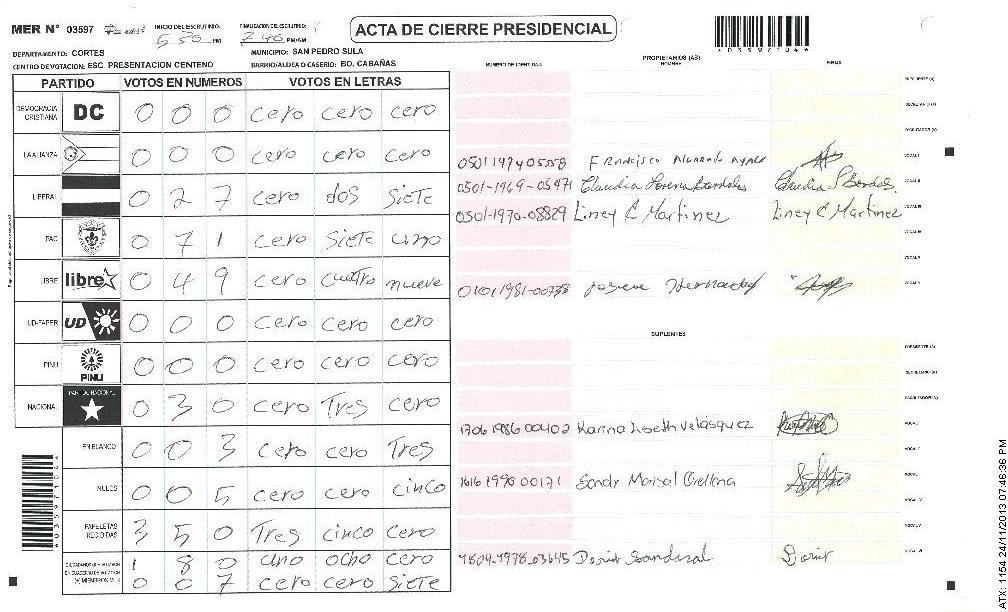 MER N° 03597 INICIO DEL ESCRUTINIO: 5 30 PM FINALIZACION DEL ESCRUTINIO: 7 40 PM/AM
ACTA DE CIERRE PRESIDENCIAL
*03597104*
DEPARTAMENTO: CORTES MUNICIPIO: SAN PEDRO SULA
CENTRO DE VOTACION: ESC. PRESENTACION CENTENO BARRIO/ALDEA O CASERIO: BO. CABAÑAS
PARTIDO VOTOS EN NUMEROS VOTOS EN LETRAS
DEMOCRACIA CRISTIANA DC 0 0 0 cero cero cero
LA ALIANZA 0 0 0 cero cero cero
LIBERAL 0 2 7 cero dos siete
PAC 0 7 1 cero siete uno
LIBRE libre 0 4 9 cero cuatro nueve
UD-FAPER UD 0 0 0 cero cero cero
PINU PINU 0 0 0 cero cero cero
NACIONAL PARTIDO NACIONAL 0 3 0 cero Tres cero
EN BLANCO 0 0 3 cero cero Tres
NULOS 0 0 5 cero cero cinco
PAPELETAS RECIBIDAS 3 5 0 Tres cinco cero
CIUDADANOS QUE VOTARON 1 8 0 uno ocho cero
(+) MIEMBROS MER 0 0 7 cero cero siete
NUMERO DE IDENTIDAD PROPIETARIOS (AS) NOMBRE FIRMA
PRESIDENTE (A)
SECRETARIO (A)
ESCRUTADOR (A)
VOCAL I
0501197405558 Francisco Alvarado
VOCAL II
0501-1969-05971 Claudia Lorena Bardales
VOCAL III
0501-1970-08829 Liney C Martinez Liney C Martinez
VOCAL IV
VOCAL V
0101-1981-00738 Hernandez
SUPLENTES
PRESIDENTE (A)
SECRETARIO (A)
ESCRUTADOR (A)
1706 1986 00402 Karina Lizeth Velásquez
1616 1990 00171 Sandr Marisol Orellana
1804-1978-03645 Dorit Sandoval Dorit
*03597104*
ATX: 1154 24/11/2013 07:46:36 PM